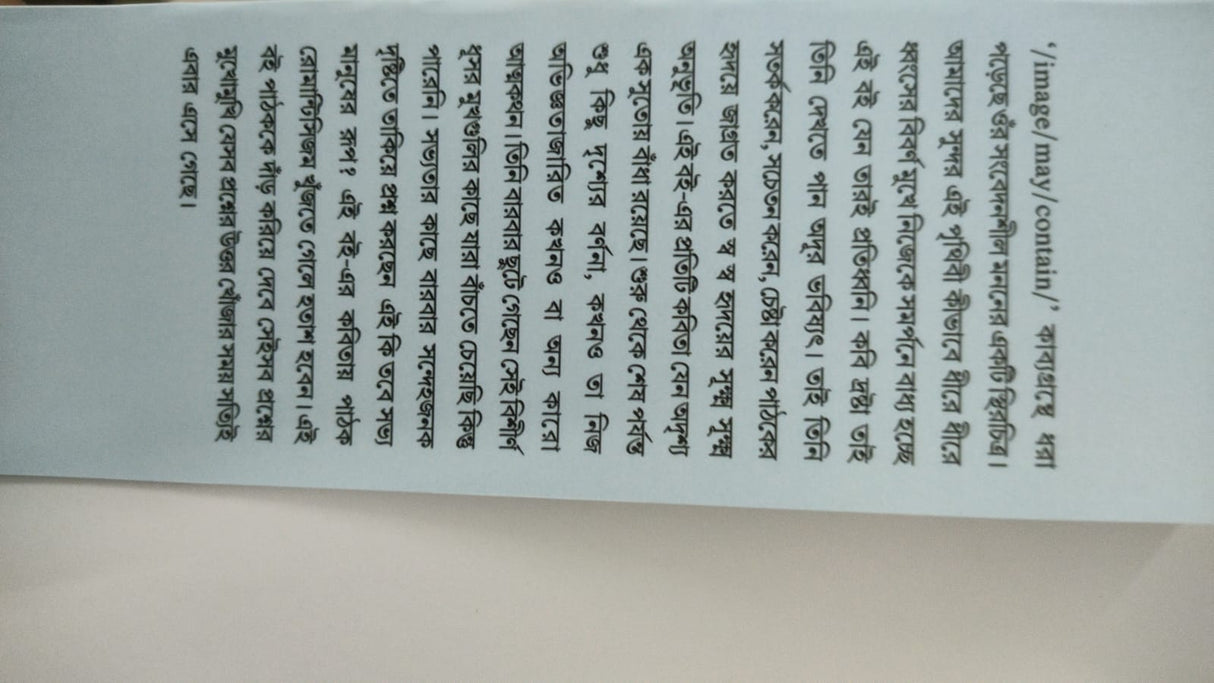 ‘/image/may/contain/’ কাব্যগ্রন্থে ধরা
পড়েছে ওঁর সংবেদনশীল মননের একটি স্থিরচিত্র।
আমাদের সুন্দর এই পৃথিবী কীভাবে ধীরে ধীরে
ধ্বংসের বিবর্ণ মুখে নিজেকে সমর্পনে বাধ্য হচ্ছে
এই বই যেন তারই প্রতিধ্বনি। কবি দ্রষ্টা তাই
তিনি দেখতে পান অদূর ভবিষ্যৎ। তাই তিনি
সতর্ক করেন, সচেতন করেন, চেষ্টা করেন পাঠকের
হৃদয়ে জাগ্রত করতে স্ব স্ব হৃদয়ের সুক্ষ্ম সুক্ষ্ম
অনুভূতি। এই বই-এর প্রতিটি কবিতা যেন অদৃশ্য
এক সুতোয় বাঁধা রয়েছে। শুরু থেকে শেষ পর্যন্ত
শুধু কিছু দৃশ্যের বর্ণনা, কখনও তা নিজ
অভিজ্ঞতাজারিত কখনও বা অন্য কারো
আত্মকথন। তিনি বারবার ছুটে গেছেন সেই বিশীর্ণ
ধূসর মুখগুলির কাছে যারা বাঁচতে চেয়েছি কিন্তু
পারেনি। সভ্যতার কাছে বারবার সন্দেহজনক
দৃষ্টিতে তাকিয়ে প্রশ্ন করছেন এই কি তবে সভ্য
মানুষের রূপ? এই বই-এর কবিতায় পাঠক
রোমান্টিসিজম খুঁজতে গেলে হতাশ হবেন। এই
বই পাঠককে দাঁড় করিয়ে দেবে সেইসব প্রশ্নের
মুখোমুখি যেসব প্রশ্নের উত্তর খোঁজার সময় সত্যিই
এবার এসে গেছে।